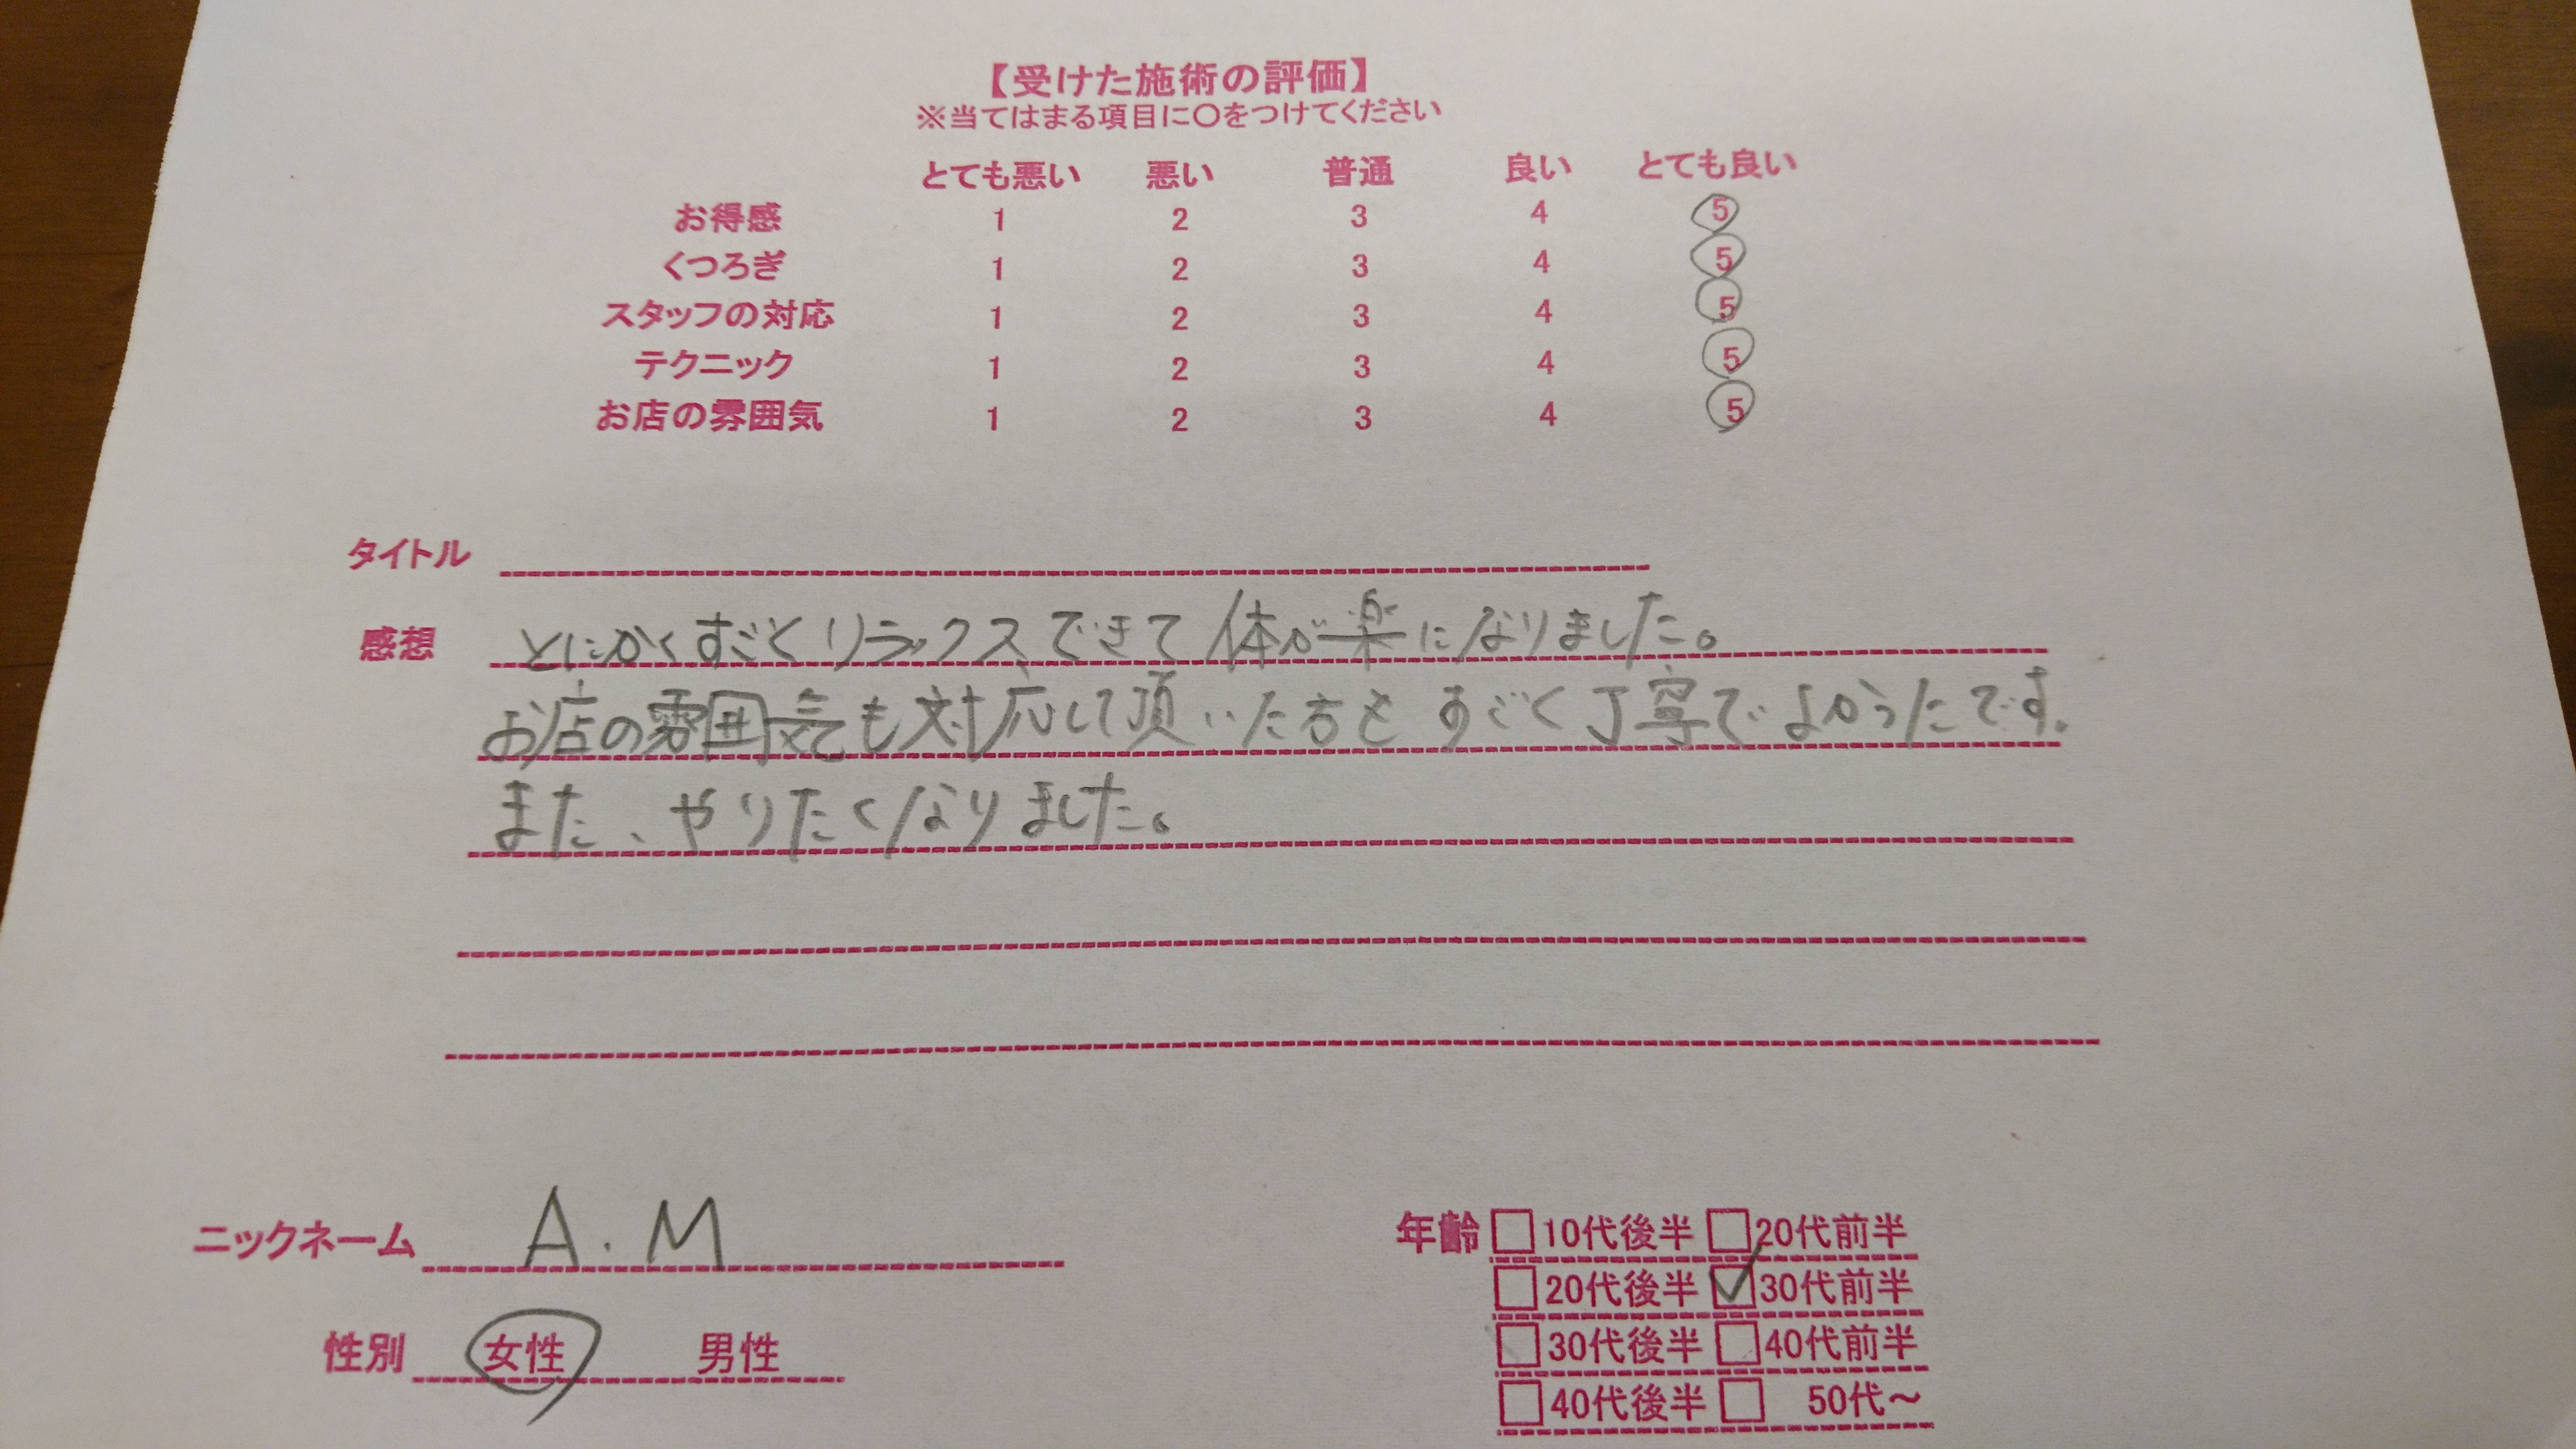 【受けた施術の評価】
※当てはまる項目に〇をつけてください
とても悪い 悪い 普通 良い とても良い
お得感 1 2 3 4 5
くつろぎ 1 2 3 4 5
スタッフの対応 1 2 3 4 5
テクニック 1 2 3 4 5
お店の雰囲気 1 2 3 4 5
タイトル
感想 とにかくすごくリラックスできて体が楽になりました。
お店の雰囲気も対応して頂いた方もすごく丁寧でよかったです。
また、やりたくなりました。
ニックネーム A.M
性別 女性 男性
年齢 10代後半 20代前半
20代後半 30代前半
30代後半 40代前半
40代後半 50代～